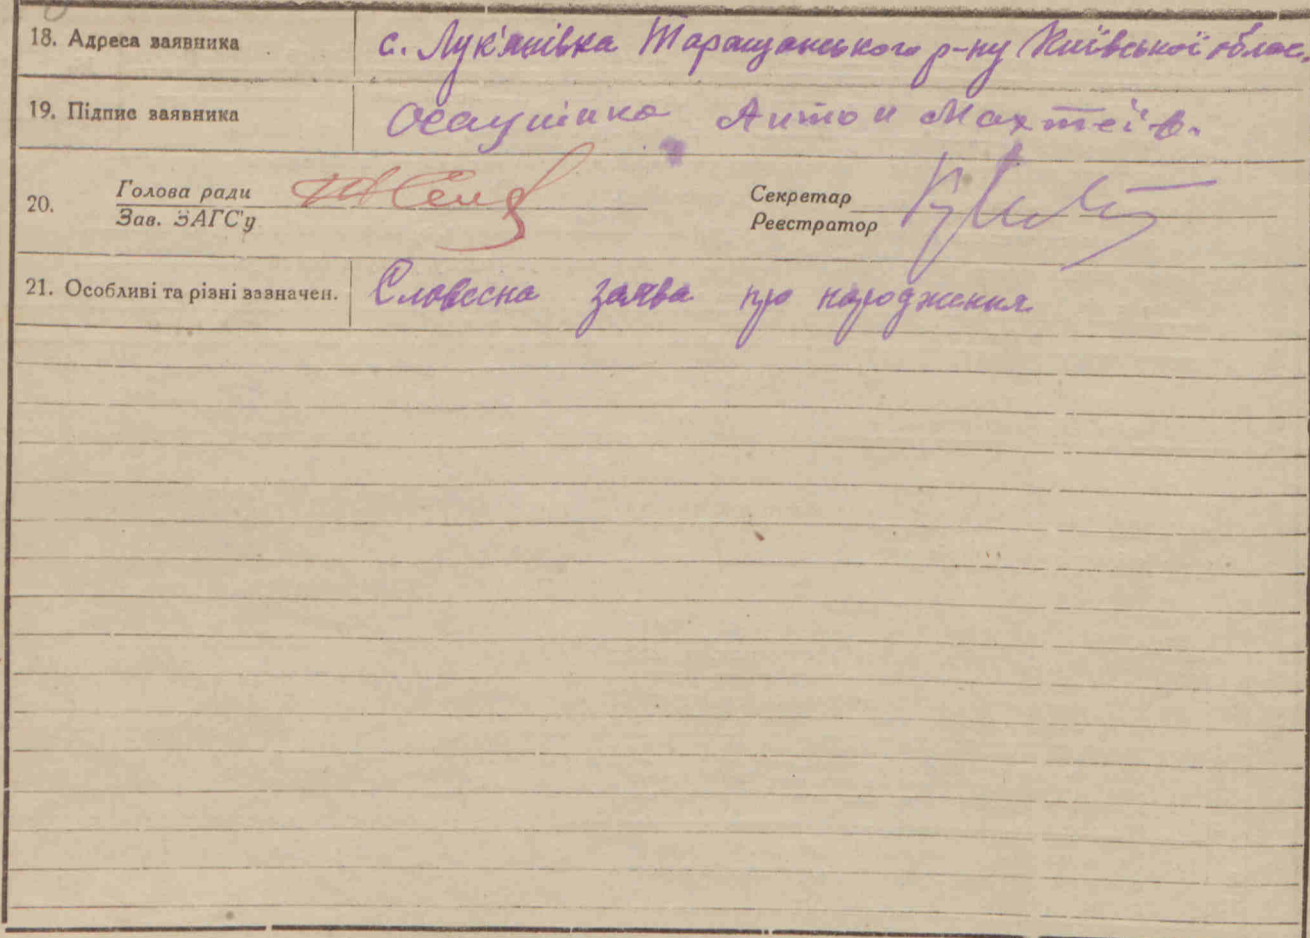 18. Адреса заявника с. Лук'янівка Таращанського р-ну Київської облас.
19. Підпис заявника Антон Махтеїв.
20. Голова ради Секретар
Зав. ЗАГС'у Реєстратор
21. Особливі та різні зазначен. Словесна заява про народження